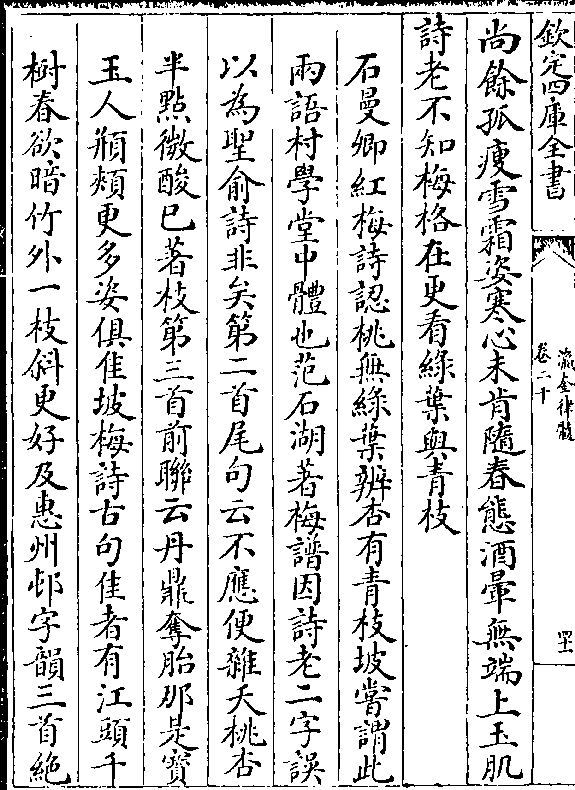 欽定四庫全書
瀛奎律髓
卷二十
四十一
尚餘孤瘦雪霜姿寒心未肯隨春態酒暈無端上玉肌
詩老不知梅格在更看綠葉與青枝
石曼卿紅梅詩認桃無綠葉辨杏有青枝坡嘗謂此
兩語村學堂中體也范石湖著梅譜因詩老二字誤
以為聖俞詩非矣第二首尾句云不應便雜夭桃杏
半點微酸已著枝第三首前聯云丹鼎奪胎那是寳
玉人頩頰更多姿俱佳坡梅詩古句佳者有江頭千
樹春欲暗竹外一枝斜更好及惠州邨字韻三首絶